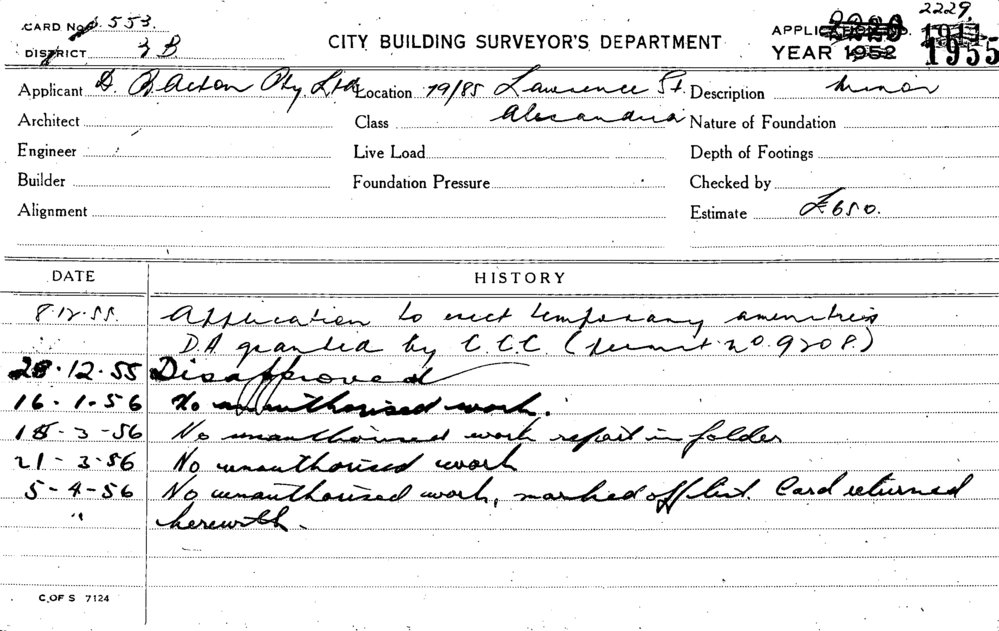 2229
CARD No. 553. APPLICATION No. 2220 1911
DISTRICT 3 B CITY BUILDING SURVEYOR'S DEPARTMENT YEAR 1952 1955
Applicant D. Bacton Pty Ltd Location 79/85 Lawrence St. Description Minor
Architect Class Alexandria Nature of Foundation
Engineer Live Load Depth of Footings
Builder Foundation Pressure Checked by
Alignment Estimate £650.
DATE HISTORY
8.12.55. Application to erect temporary amenities
D.A. granted by C.C.C. (permit no. 9208.)
28.12.55 Disapproved
16-1-56 No unauthorised work.
15-3-56 No unauthorised work report in folder
21-3-56 No unauthorised work
5-4-56 No unauthorised work, marked off list. Card returned
" herewith.
C. OF S 7124